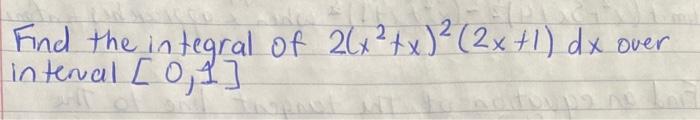 Find the integral of 2(x²+x)²(2x+1) dx over
interval [0,1]